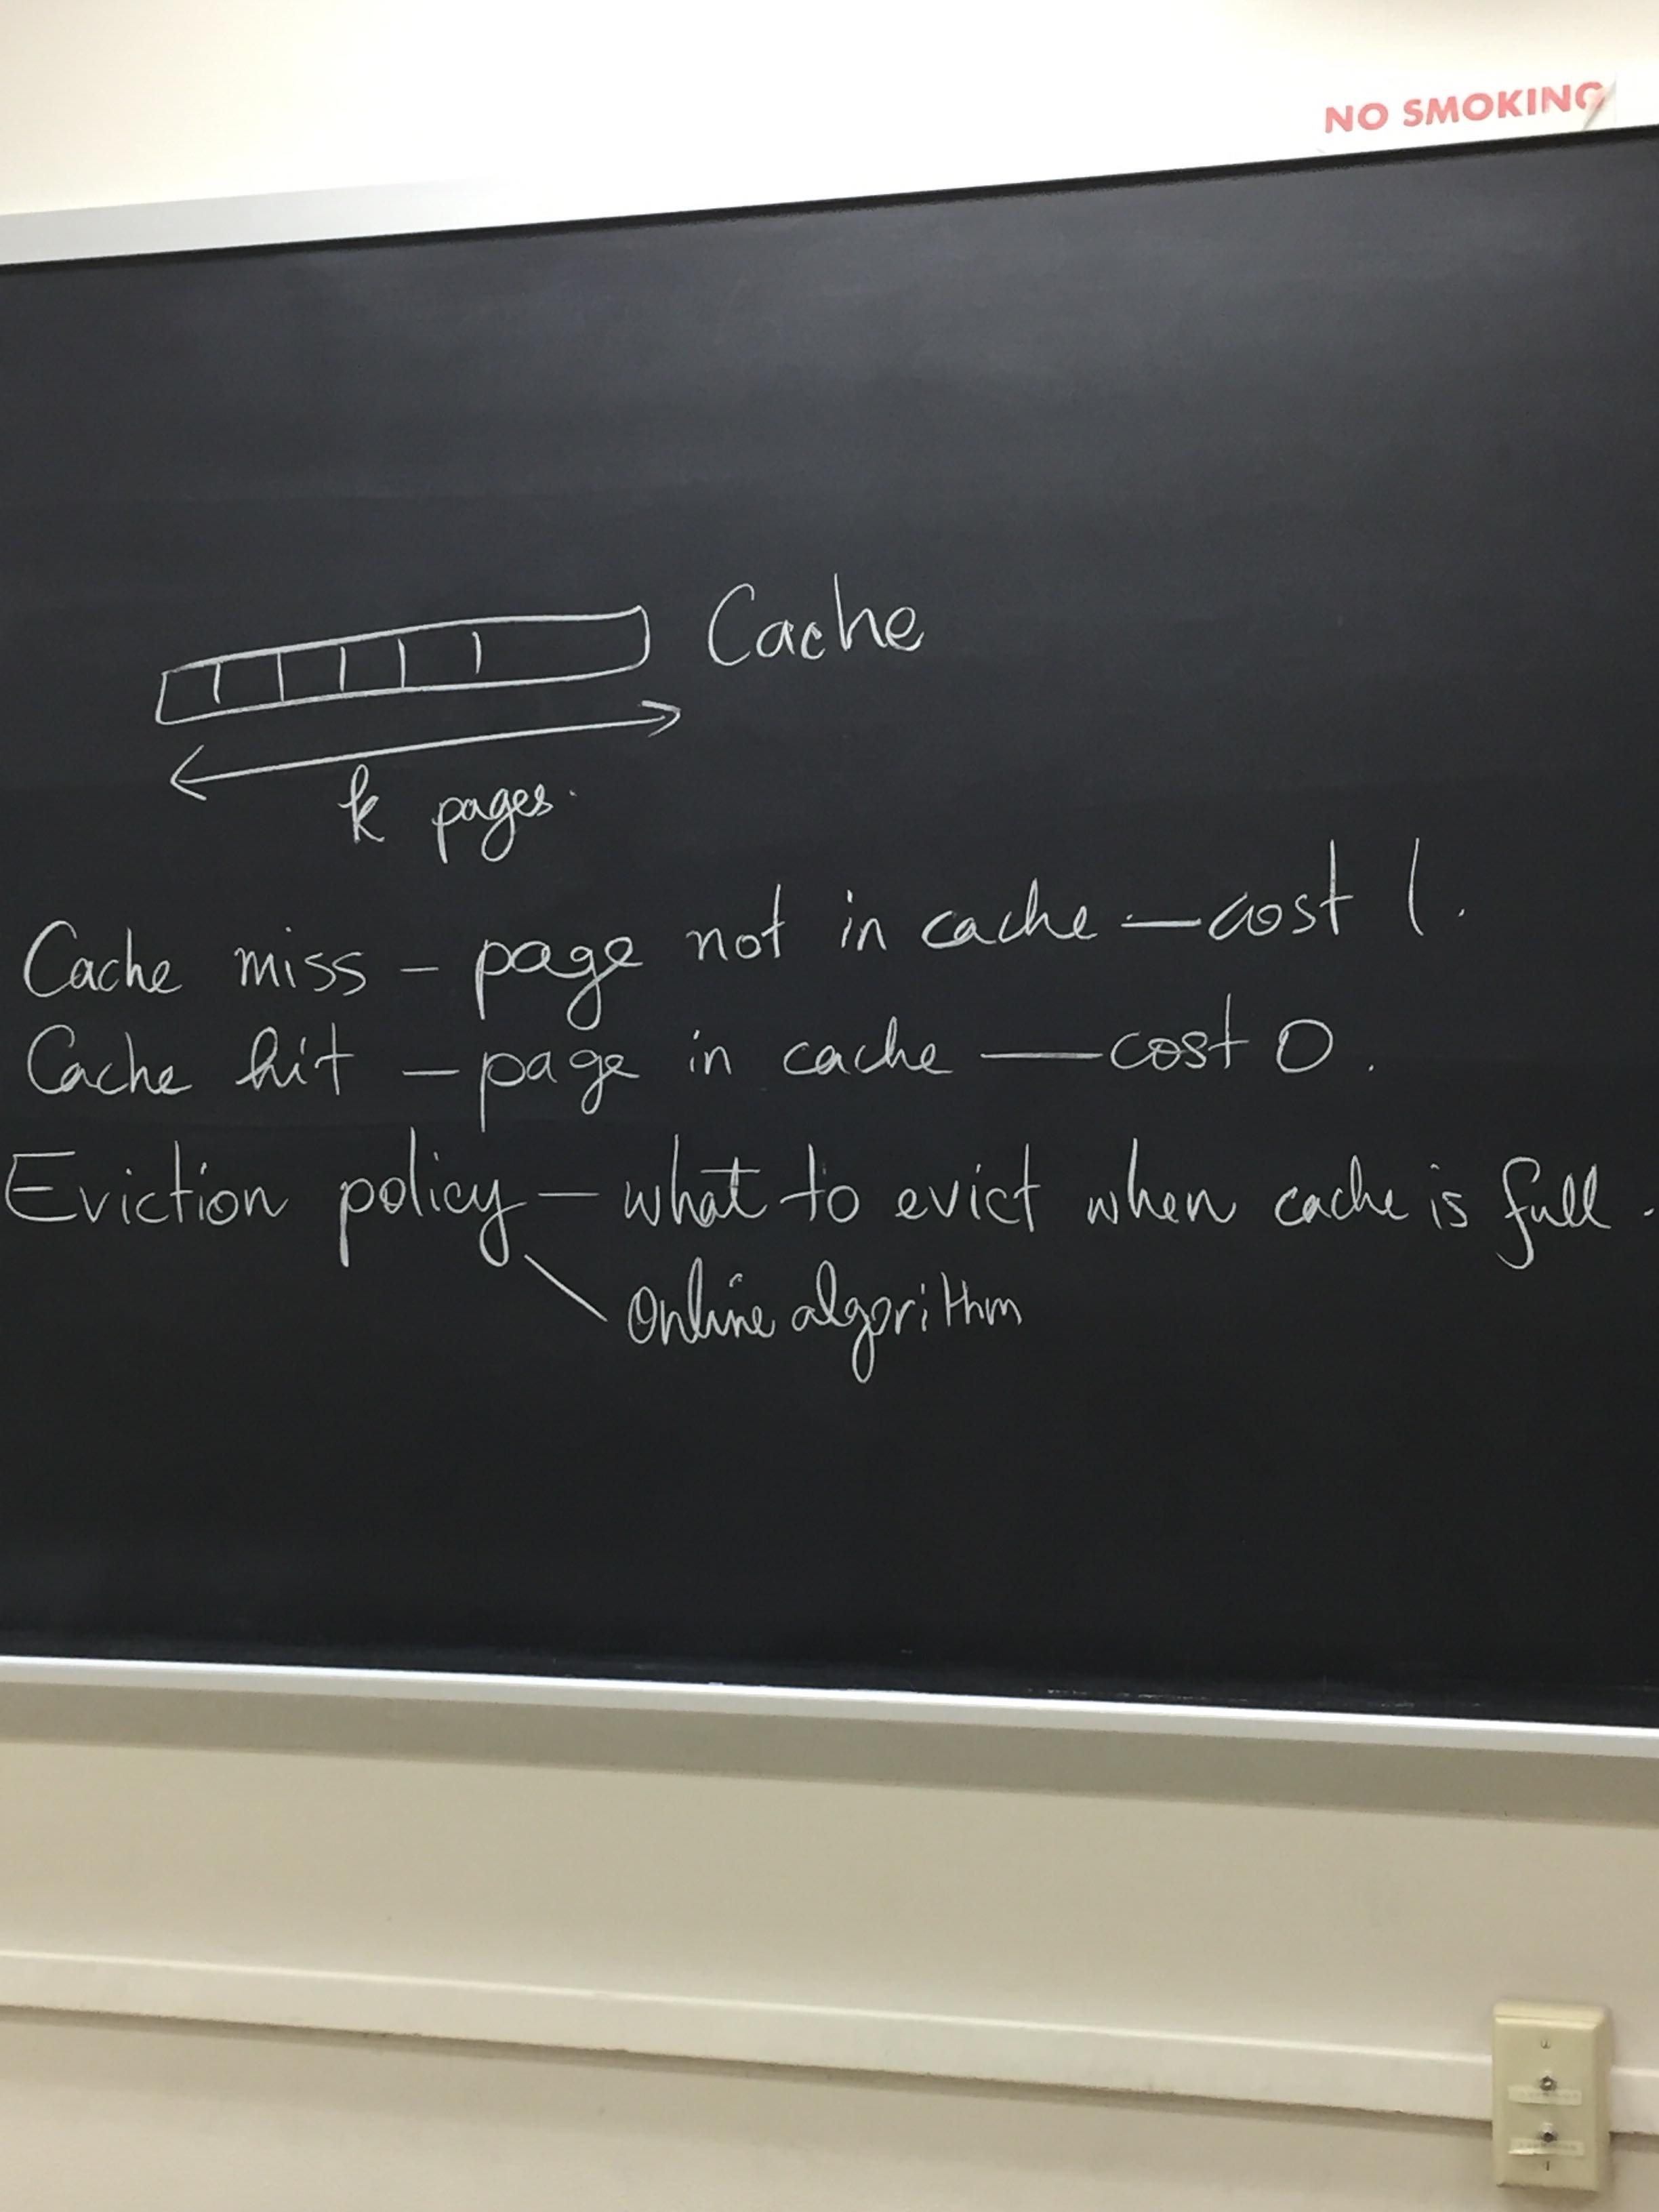 NO SMOKING
Cache
k pages.
Cache miss - page not in cache — cost 1.
Cache hit - page in cache — cost 0.
Eviction policy - what to evict when cache is full.
Online algorithm